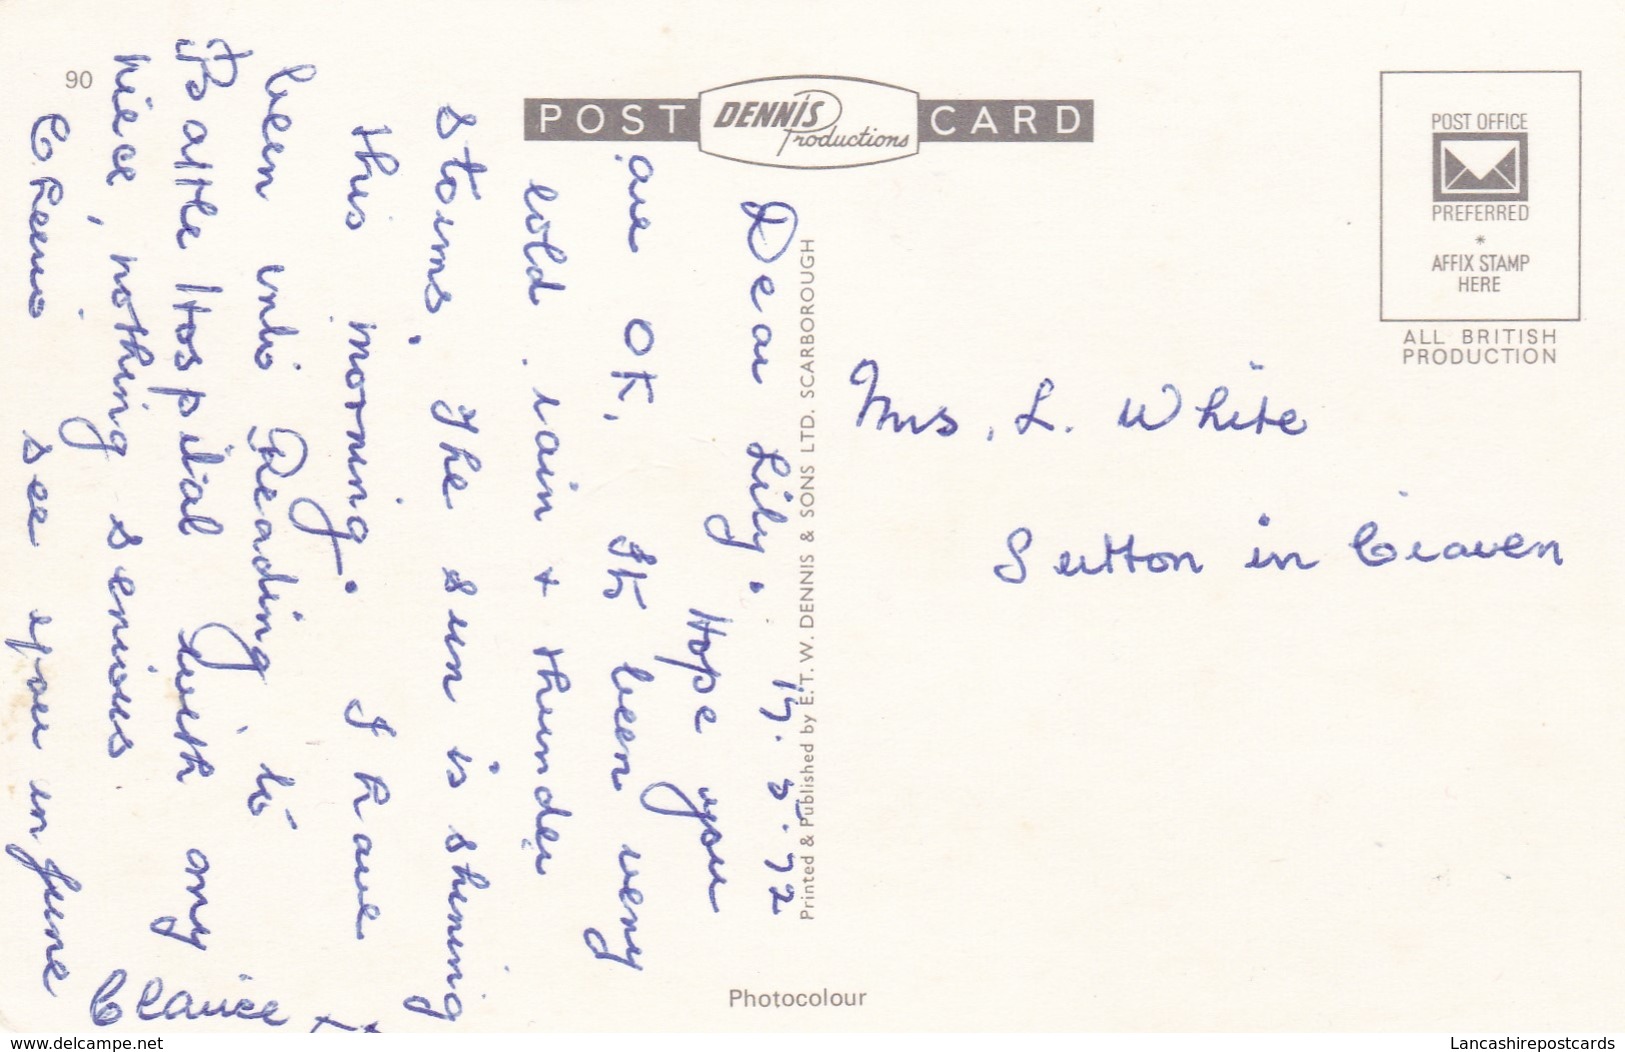 90
POST DENNIS Productions CARD
POST OFFICE
PREFERRED
*
AFFIX STAMP
HERE
ALL BRITISH
PRODUCTION
Dear Lily. 17.5.72
Hope you
are OK. Its been very
cold, rain + thunder
storms. The sun is shining
this morning. I have
been into Reading to
Battle Hospital with my
niece, nothing serious.
Cheerio see you in June
Clarice
Printed & Published by E. T. W. DENNIS & SONS LTD. SCARBOROUGH
Mrs. L. White
Sutton in Craven
Photocolour
www.delcampe.net
Lancashirepostcards